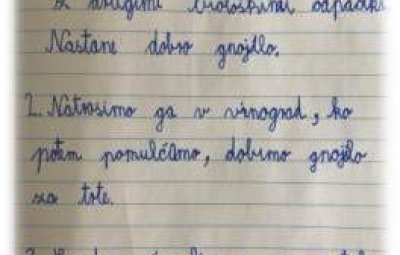 z drugimi biološkimi odpadki
Nastane dobro gnojilo.
2. Natrosimo ga v vinograd, ko
potem pomulčamo, dobimo gnojilo
za trte.